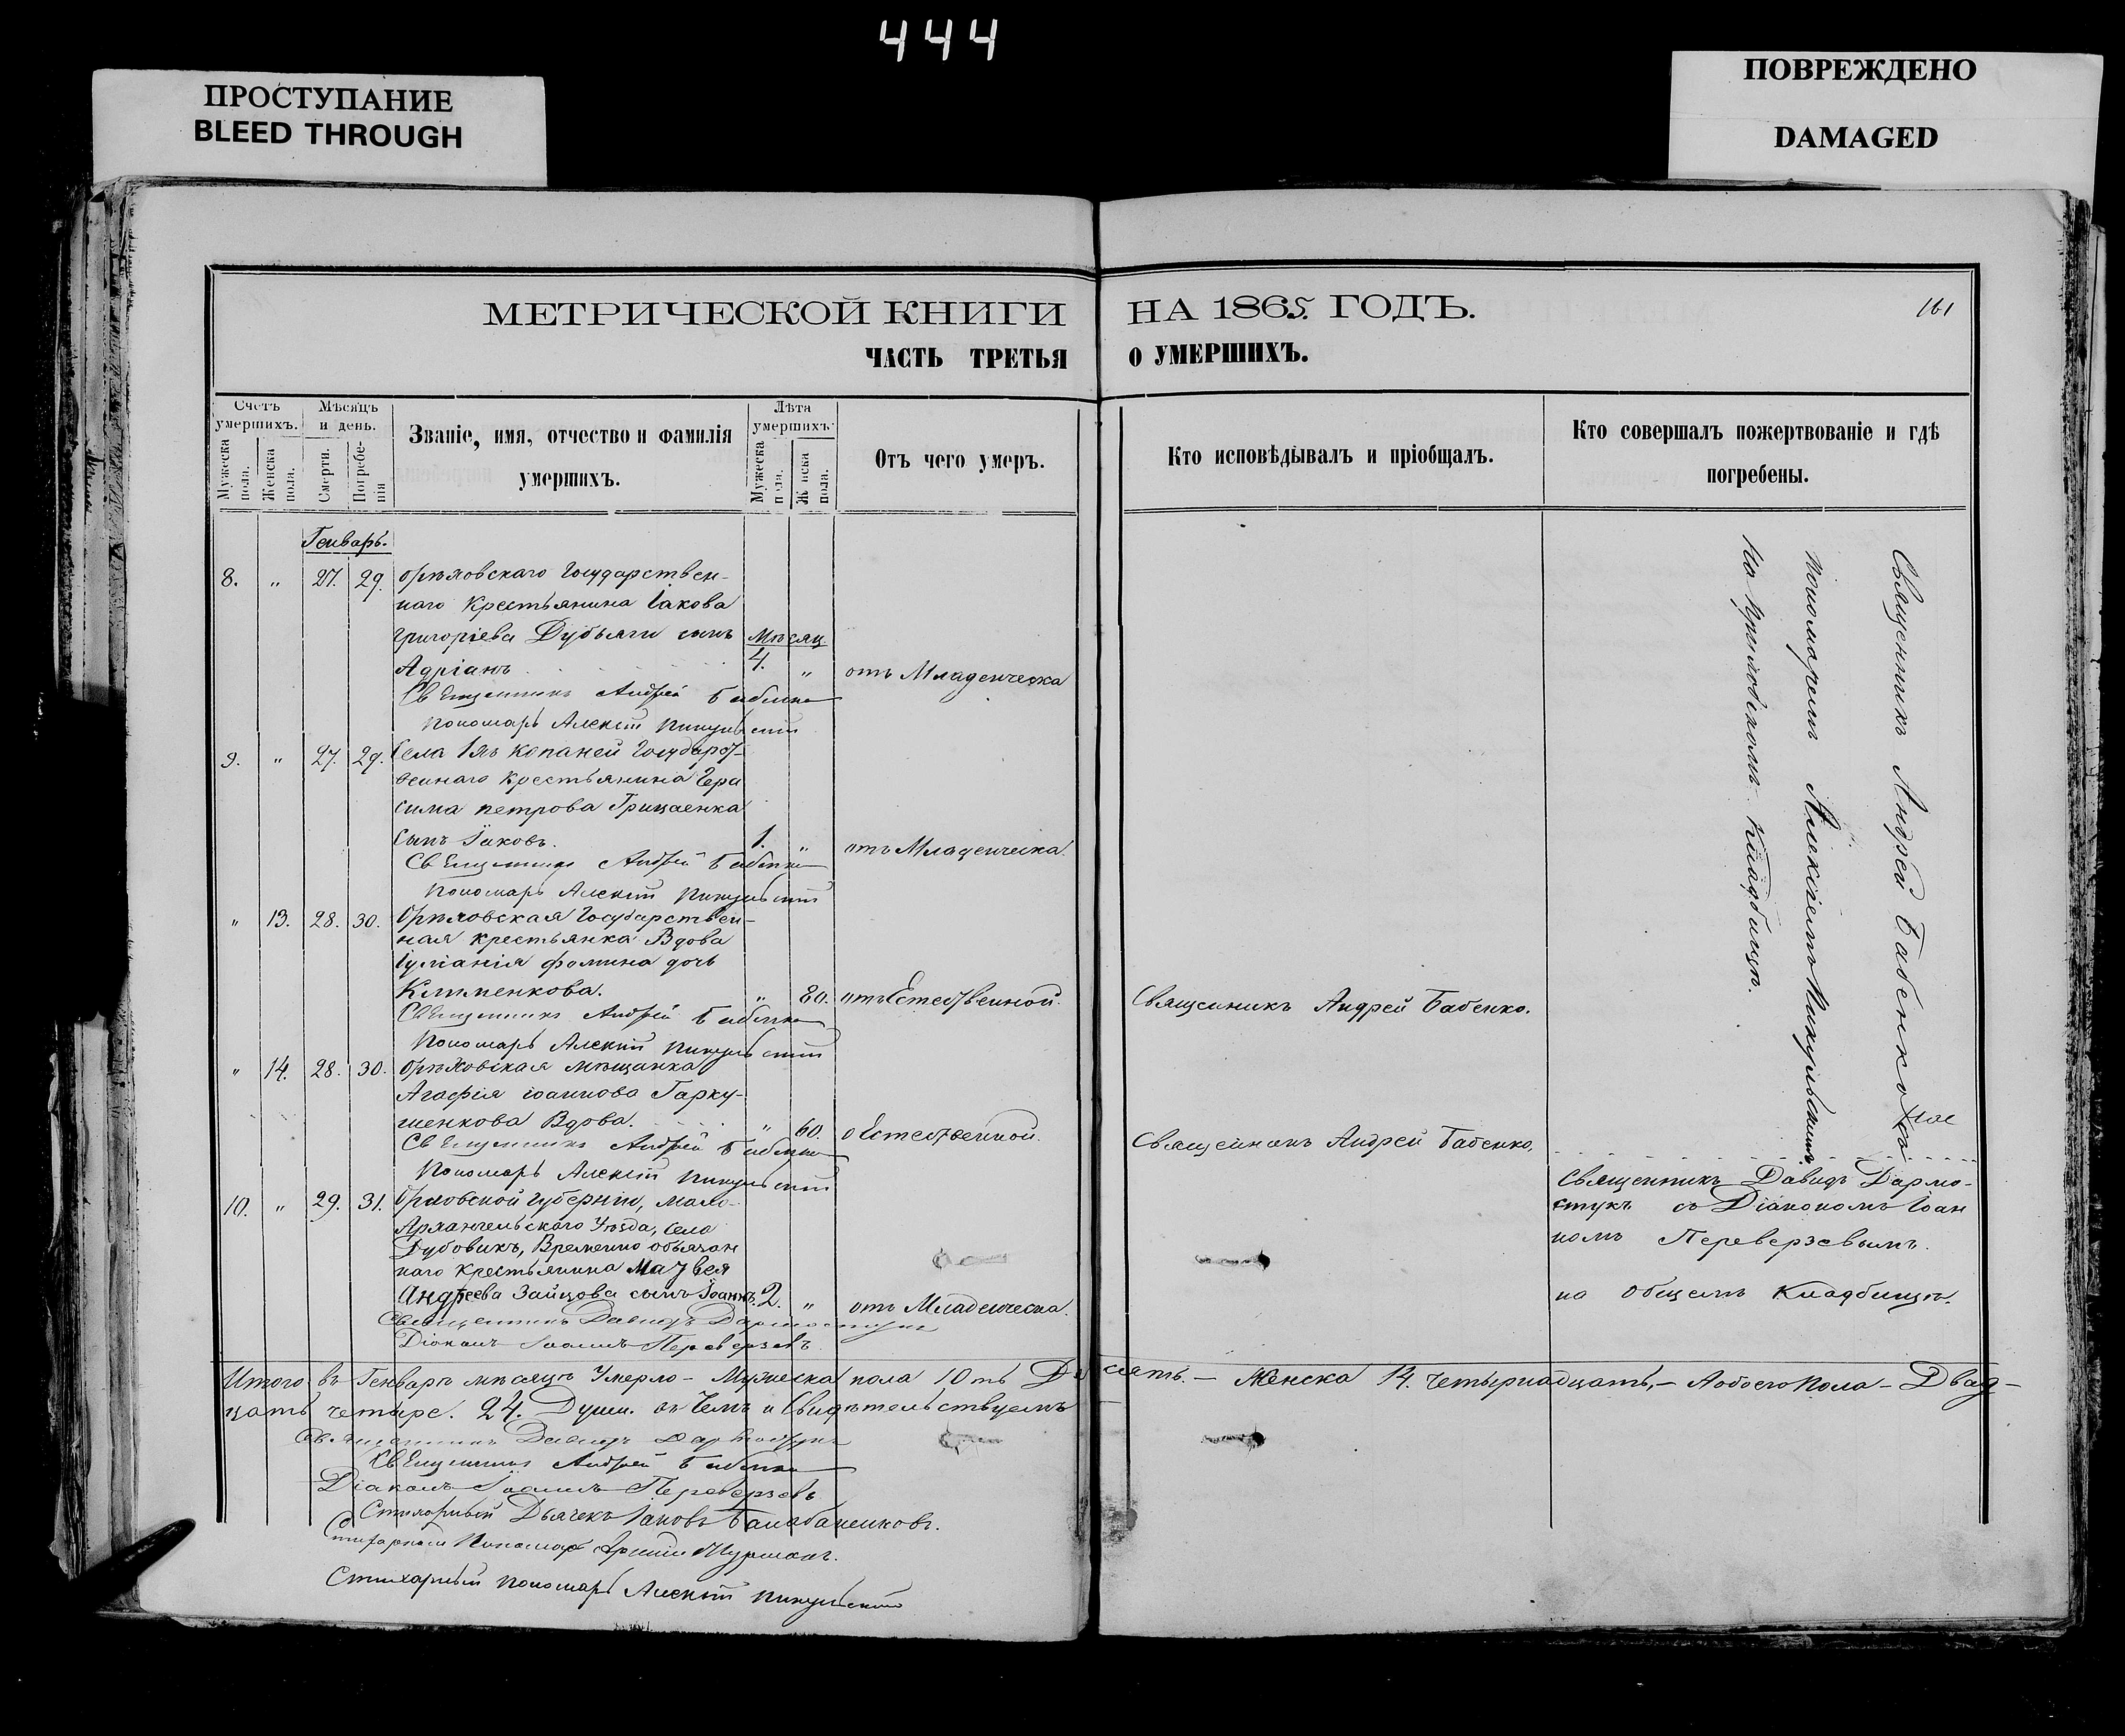 444
ПРОСТУПАНИЕ
BLEED THROUGH
ПОВРЕЖДЕНО
DAMAGED
МЕТРИЧЕСКОЙ КНИГИ НА 1865 ГОДЪ.
161
ЧАСТЬ ТРЕТЬЯ О УМЕРШИХЪ.
Счетъ умершихъ.
Мужеска пола.
Женска пола.
Мѣсяцъ и день.
Смерти.
Погребенія
Званіе, имя, отчество и фамилія умершихъ.
Лѣта умершихъ
Мужеска пола.
Ж нска пола.
Отъ чего умеръ.
Кто исповѣдывалъ и пріобщалъ.
Кто совершалъ пожертвованіе и гдѣ погребены.
Генварь.
8. „ 27. 29. Орѣховскаго Государствен-
наго Крестьянина Іакова
Григоріева Дубяги сынъ Мѣсяц.
Адріанъ 4. „ отъ Младенческа
Священникъ Андрей Бабенко
Пономарь Алексій Пикульскій
9. „ 27. 29. Села
веннаго Крестьянина Гера
сима Петрова Грицаенка
сынъ Іаковъ. 1. „ отъ Младенческа.
Священникъ Андрей Бабенко
Пономарь Алексій Пикульскій
„ 13. 28. 30. Орѣховская Государствен-
ная крестьянка Вдова
Іуліанія Фомина дочь
Клименкова. „ 80. отъ Естественной.
Священникъ Андрей Бабенко.
Священникъ Андрей Бабенко
Пономарь Алексій Пикульскій
„ 14. 28. 30. Орѣховская мѣщанка
Агафія Іоаннова Гарку-
шенкова Вдова. „ 60. о Естественной.
Священникъ Андрей Бабенко,
Священникъ Андрей Бабенко
Пономарь Алексій Пикульскій
Священникъ Андрей Бабенко
пономаремъ Алексіемъ Пикульскимъ
На Кладбищѣ.
10. „ 29. 31. Орловской губерніи, Мало-
Архангельскаго Уѣзда, Села
Дубовикъ, Временно обязан
наго крестьянина Матвея
Андреева Зайцова сынъ Іоаннъ. 2. „ отъ Младенческа.
Священникъ Давидъ Дармостукъ
Діаконъ Іоаннъ Переверзевъ
Священникъ Давидъ Дармо-
стукъ съ Діакономъ Іоан
номъ Переверзевымъ.
на общемъ Кладбищѣ.
Итого въ Генварѣ мѣсяцѣ Умерло – Мужеска пола 10ть Десять. – Женска 14. Четырнадцать, – Аобоего Пола – Двад-
цать четыре. 24. Души. въ Чемъ и Свидѣтельствуемъ
Священникъ Давидъ Дармостукъ
Священникъ Андрей Бабенко
Діаконъ Іоаннъ Переверзевъ
Стихарный Дьячекъ Іаковъ Балабаненковъ.
Стихарный Пономарь
Стихарный пономарь Алексій Пикульскій